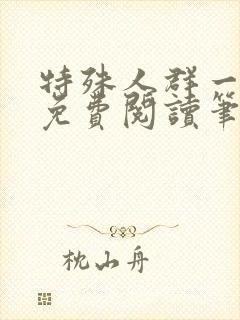 特殊人群一
免費閱讀筆
枕山舟